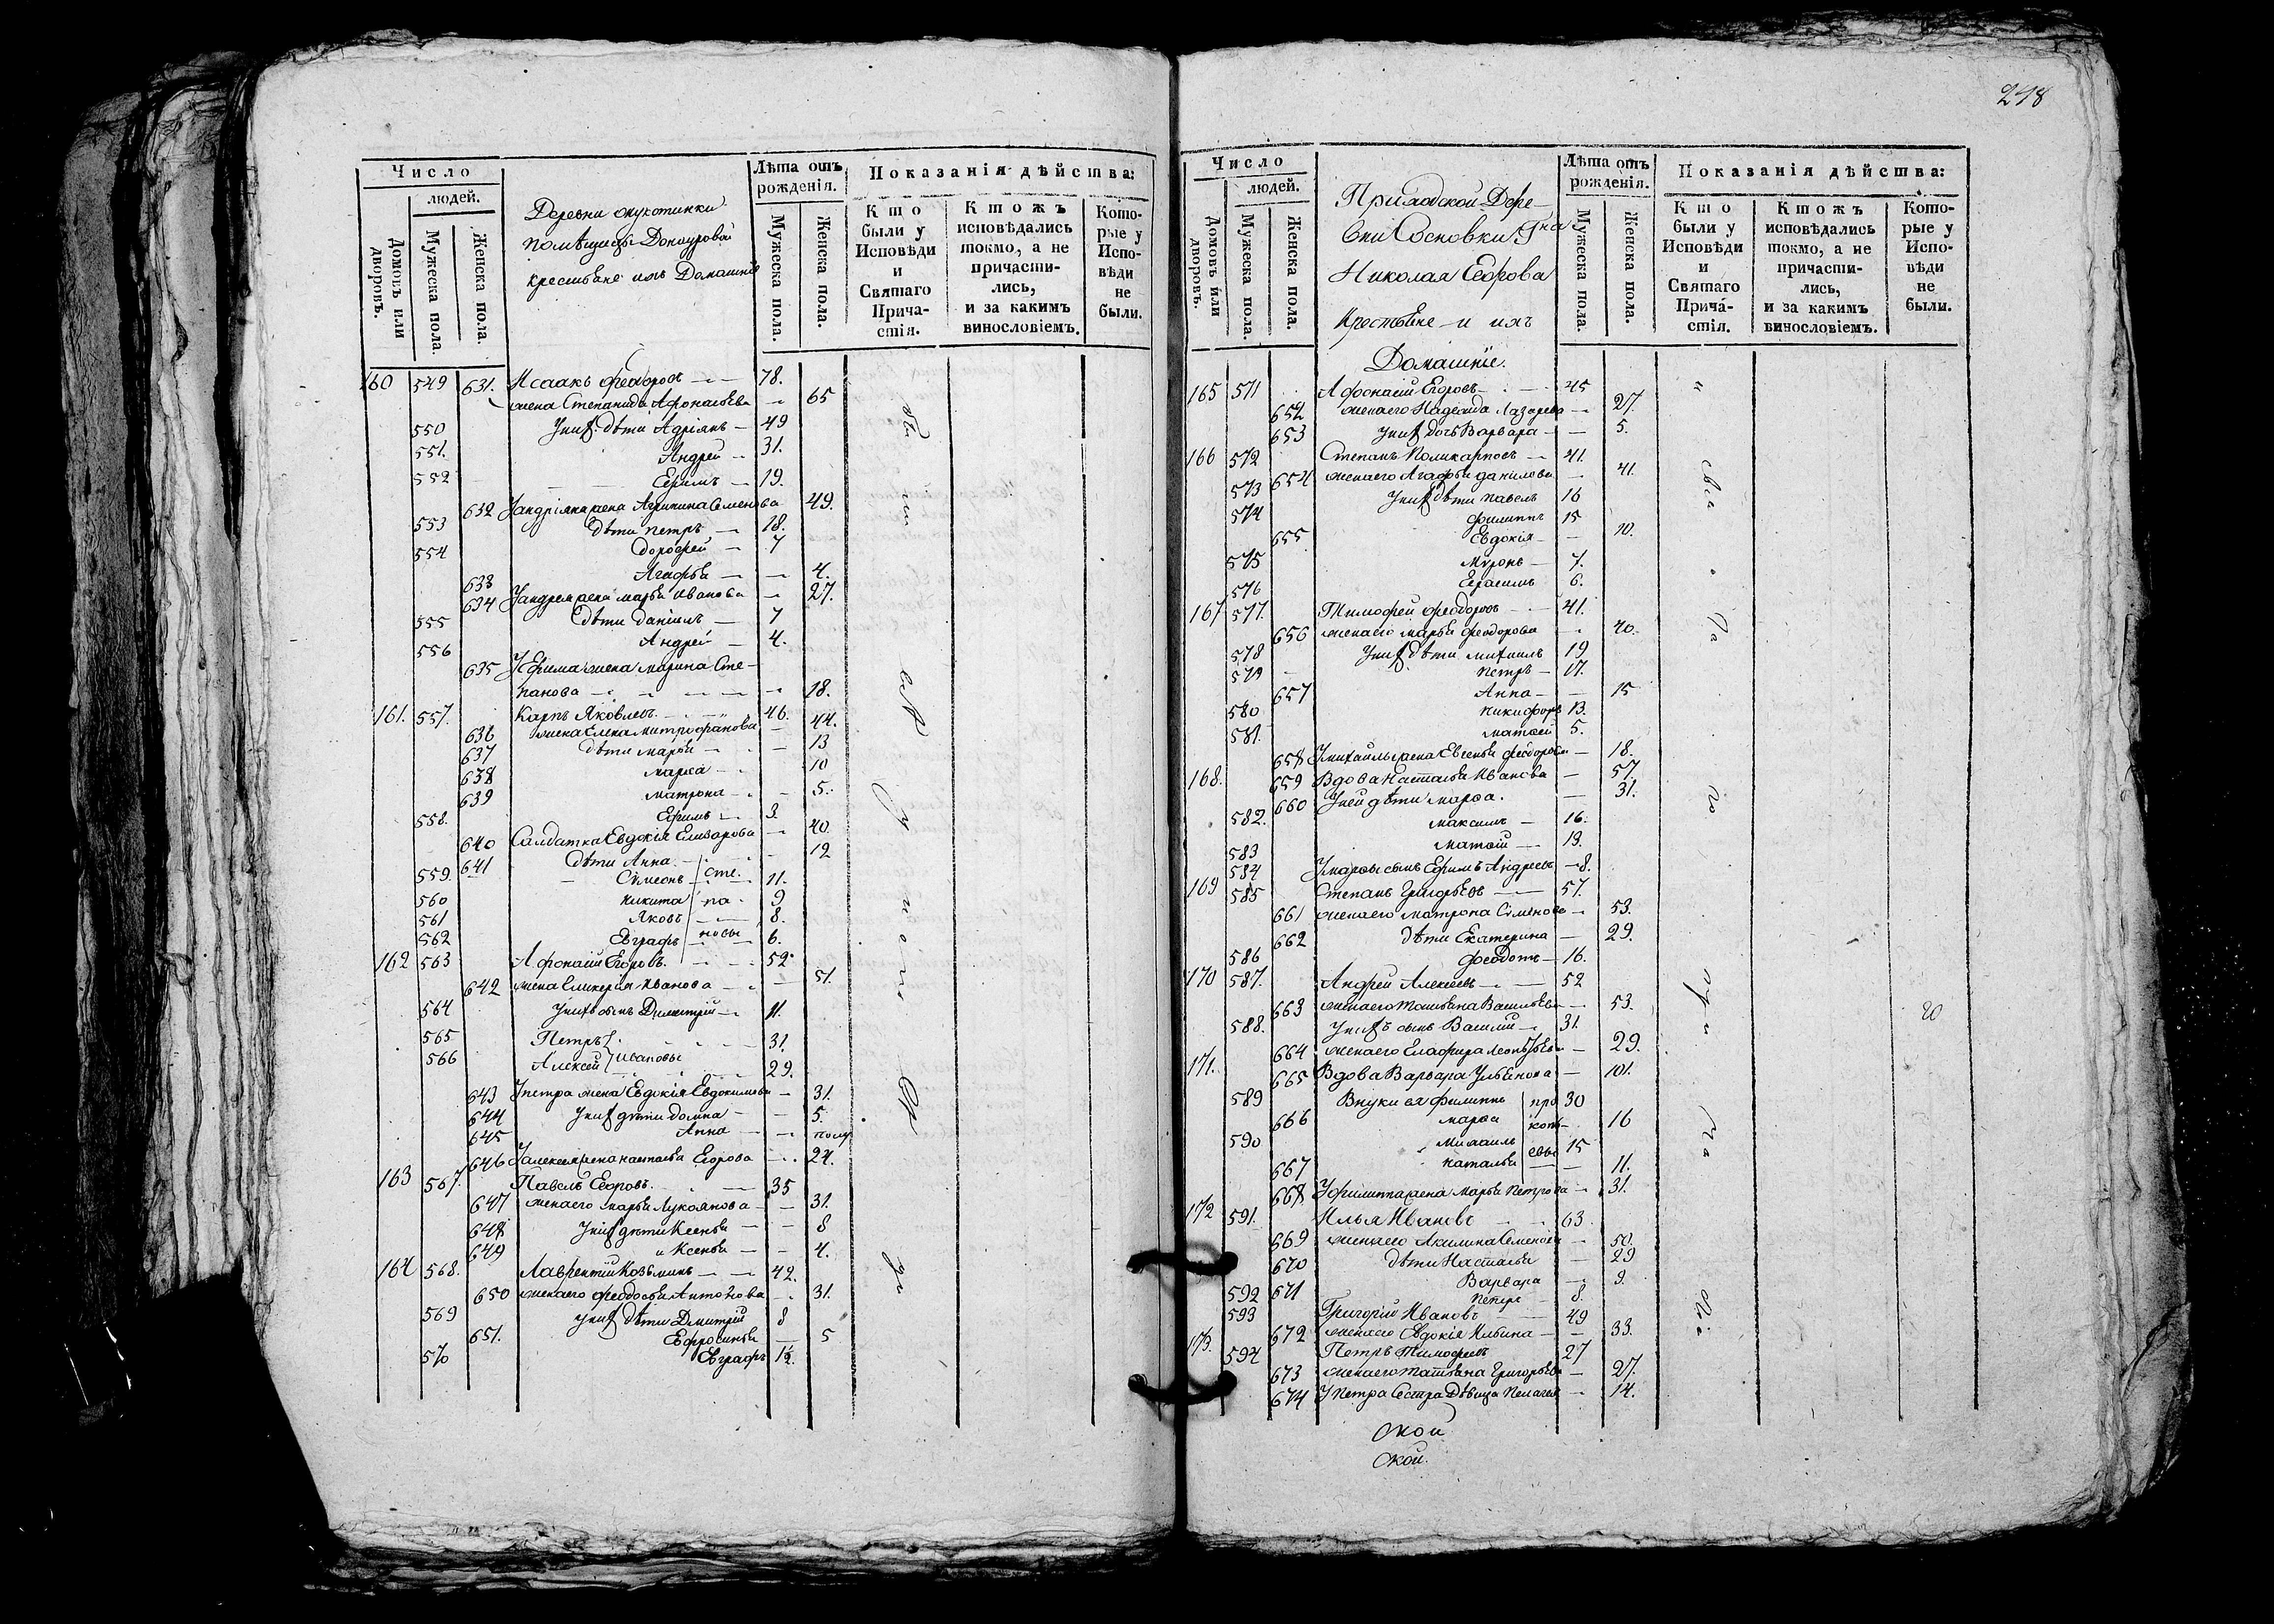 218
Число
людей.
Домовъ или дворовъ.
Мужеска пола.
Женска пола.
Деревни
помѣщицы
крестьяне ихъ Домашніе
Лѣта отъ рожденія.
Мужеска пола.
Женска пола.
Показанія дѣйства:
Кто были у Исповѣди и Святаго Причастія.
Ктожъ исповѣдались токмо, а не причастились, и за какимъ винословіемъ.
Которые у Исповѣди не были.
160 549 631. Исаакъ Феодоровъ 78.
жена Степанида Афонасьева 65
550 У них дѣти Адріянъ 49
551. Андрей 31.
552 Ефимъ 19.
632 У андріяна жена Акулина Семенова 49.
553 Дѣти петръ 18.
554 Дорофей 7
633 Агафья 4.
634 У андрея жена марья Иванова 27.
555 Дѣти даніилъ 7
556 Андрей 4.
635 У Ефима жена марина Сте-
панова 18.
161. 557. Карпъ Яковлевъ 46.
636 жена Елена Митрофанова 44.
637 дѣти марья 13
638 марѳа 10
639 матрона 5.
558. Ефимъ 3.
640 Салдатка Евдокія Елизарова 40.
641 Дѣти Анна 12
559. Симеонъ Сте- 11.
560 никита па- 9
561 Яковъ 8.
562 Евграфъ новы 6.
162 563 Афонасій Егоровъ 52
642 жена Гликерія Иванова 51.
564 У них сынъ Димитрій 11.
565 Петръ 31.
566 Алексѣй Ивановы 29.
643 У петра жена Евдокія Евдокимова 31.
644 У них дѣти домна 5.
645 Анна полу
646 У алексея жена настасья Егорова 24.
163 567. Павелъ Егоровъ 35
647 жена его марья Лукоянова 31.
648 У них дѣти Ксенья 8
649 и Ксенья 4.
164 568. Лаврентій Козьминъ 42.
650 жена его феодосья Антонова 31.
569 У них дѣти Дмитрій 8
651. Ефросинья 5
570 Евграфъ 1½.
Число
людей.
Домовъ или дворовъ.
Мужеска пола.
Женска пола.
Приходской Дере-
вни Сосновки Гна
Николая Егорова
Крестьяне и ихъ
Домашніе.
Лѣта отъ рожденія.
Мужеска пола.
Женска пола.
Показанія дѣйства:
Кто были у Исповѣди и Святаго Причастія.
Ктожъ исповѣдались токмо, а не причастились, и за какимъ винословіемъ.
Которые у Исповѣди не были.
165 571 Афонасій Егоровъ 45
652 жена его Надежда Лазарева 27.
653 У них дочь Варвара 5.
166 572 Степанъ Поликарповъ 41.
654 жена его Агафья данилова 41.
573 У них дѣти павелъ 16
574 филиппъ 15
655 Евдокія 10.
575 Миронъ 7.
576 Герасимъ 6.
167 577. Тимофей феодоровъ 41.
656 жена его марья феодорова 40.
578 У них дѣти михаилъ 19
579 петръ 17.
657 Анна 15
580 никифоръ 13.
581. матѳей 5.
658 У михайлы жена Евгенья феодорова 18.
168. 659 Вдова Настасья Иванова 57.
660 У ней дѣти марѳа 31.
582. максимъ 16.
583 матѳей 13.
584 У марѳы сынъ Ефимъ Андреевъ 8.
169 585 Степанъ Григорьевъ 57.
661 жена его матрона Симонова 53.
662 дѣти Екатерина 29.
586 феодотъ 16.
170 587. Андрей Алексеевъ 52
663 жена его Татьяна Васильева 53.
588. У них сынъ Василій 31.
664 жена его Глафира 29.
171. 665 Вдова Варвара Ульянова 101.
589 Внуки ея филиппъ про 30
666 марѳа коть 16
590 михаилъ 15
667 наталья евы 11.
668 У филиппа жена Марья Петрова 31.
172 591. Илья Ивановъ 63.
669 жена его Акилина Семенова 50.
670 дѣти Настасья 29
671 Варвара 9.
592 петръ 8.
593 Григорій Ивановъ 49
672 жена его Евдокія Ильина 33.
173. 594 Петръ Тимофеевъ 27
673 жена его татьяна Григорьева 27.
674 У петра сестра Дѣвица Пелагея 14.
20
ской
ской.